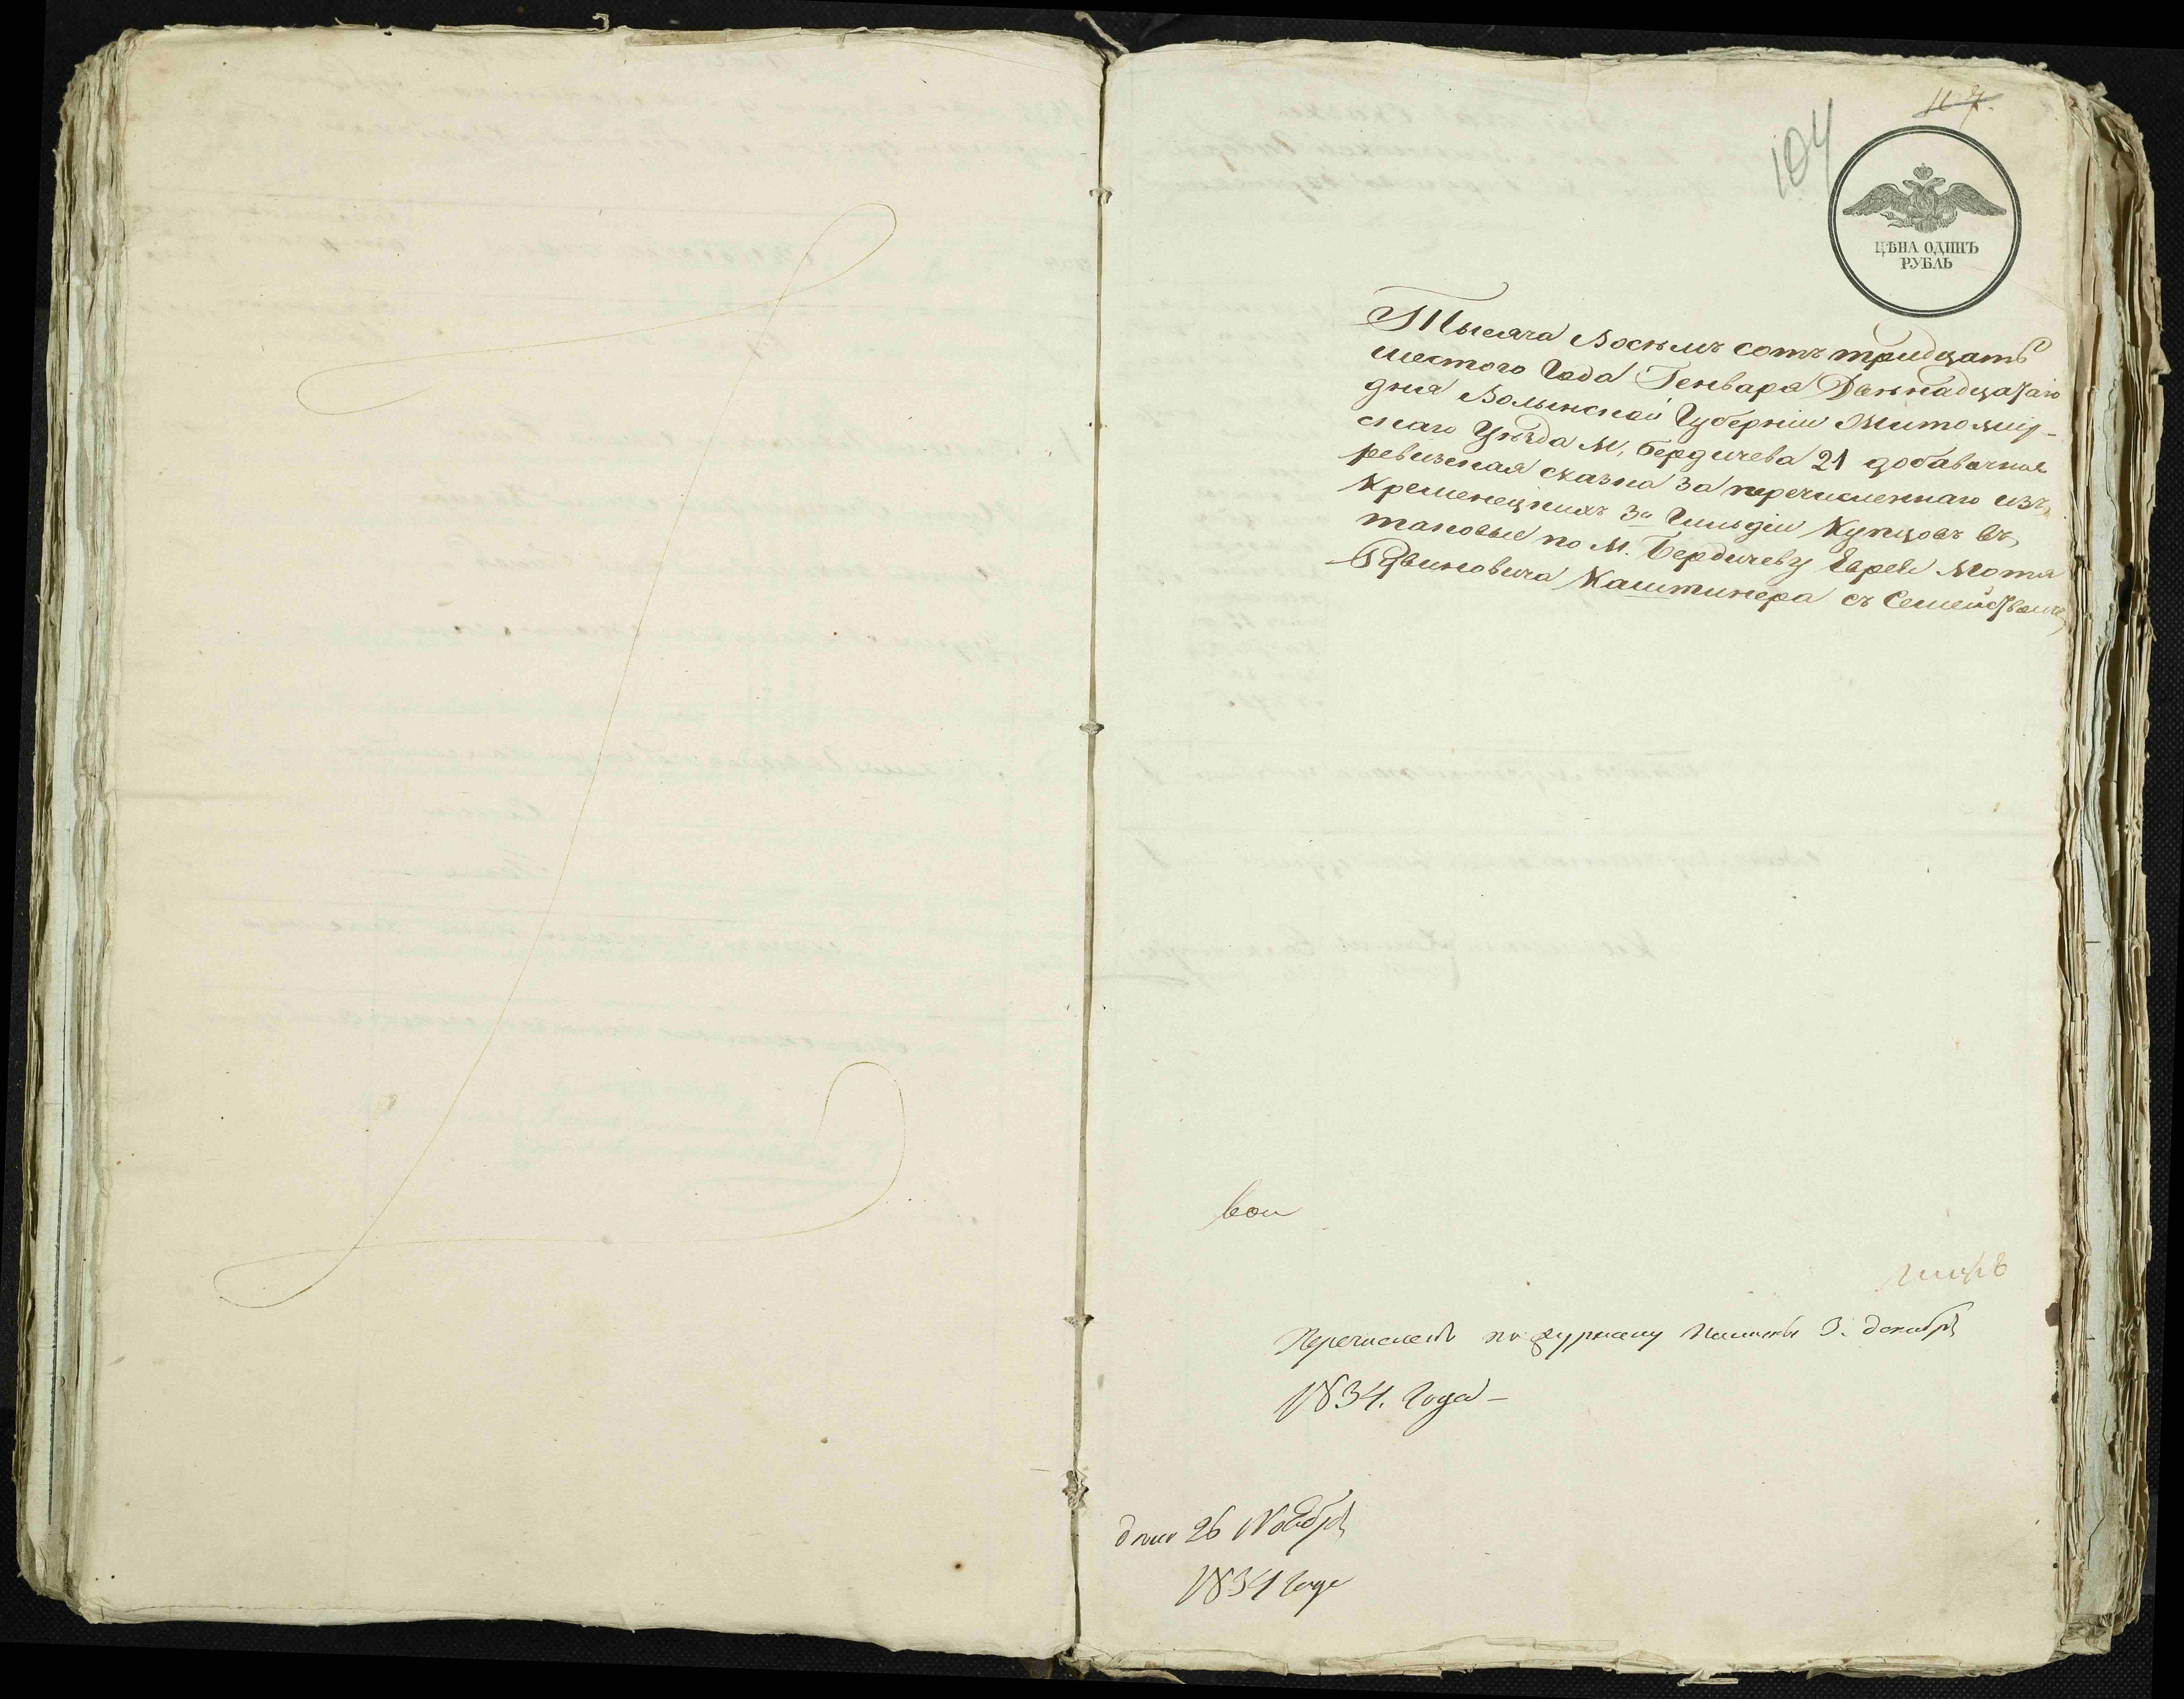 107.
104
ЦѢНА ОДИНЪ
РУБЛЬ
Тысяча Восѣмъ сотъ тридцать
шестого Года Генваря Двенадцатаго
дня Волынской Губерніи Житомир-
скаго Уѣзда М, Бердичева 21 добавочная
ревизская сказка за перечисленнаго изъ
Кременецкихъ 3й Гильдіи Купцовъ въ
таковые по М. Бердичеву Еврея Мотя
Рувиновича Каштинера съ Семействомъ
Перечисленъ по журналу Палаты 3. декабря
1834. Года
26 Ноября
1834 Года